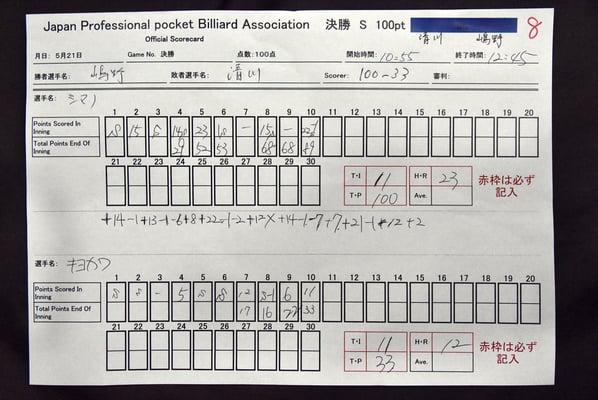 Japan Professional pocket Billiard Association 決勝 S 100pt 清川 嶋野 8
Official Scorecard
月日: 5月21日 Game No. 決勝 点数:100点 開始時間: 10:55 終了時間: 12:45
勝者選手名: 嶋野 敗者選手名: 清川 Scorer: 100-33 審判:
選手名: シマノ
1 2 3 4 5 6 7 8 9 10 11 12 13 14 15 16 17 18 19 20
Points Scored In Inning S 15 S 23 -
Total Points End Of Inning 52 53 68 68
21 22 23 24 25 26 27 28 29 30
T·I 11 H·R 23
T·P 100 Ave.
赤枠は必ず
記入
選手名: キヨカワ
1 2 3 4 5 6 7 8 9 10 11 12 13 14 15 16 17 18 19 20
Points Scored In Inning S S - 5 S S 12 6 11
Total Points End Of Inning 17 16 33
21 22 23 24 25 26 27 28 29 30
T·I 11 H·R 12
T·P 33 Ave.
赤枠は必ず
記入